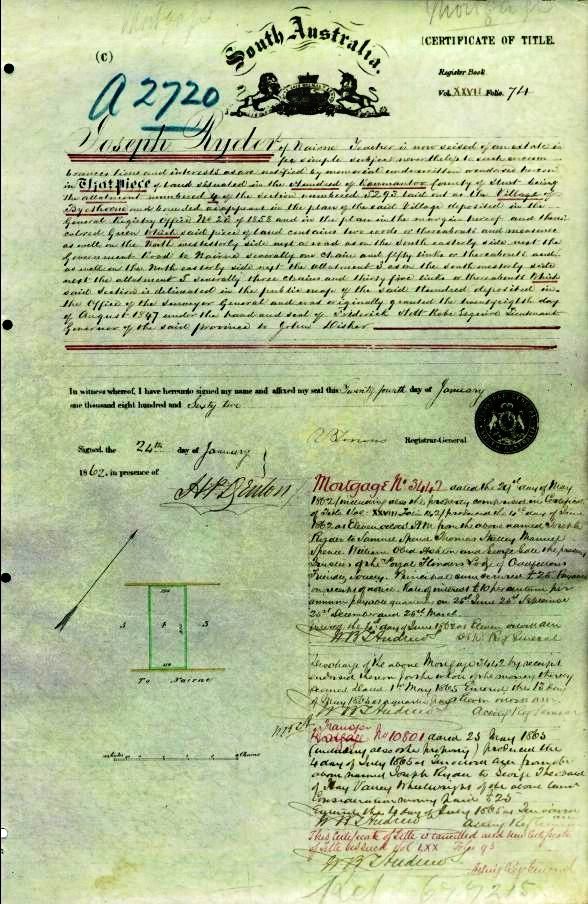 South Australia.
(C)
CERTIFICATE OF TITLE.
Register Book
Vol. XXVII Folio 74
A 2720
Joseph Ryder of Nairne Teacher is now seised of an estate in
fee simple subject nevertheless to such encum
brances liens and interests as are notified by memorial underwritten or endorsed hereon
in That piece of land situated in the Hundred of Kanmantoo County of Sturt being
the allotment numbered 4 of the section numbered 5293 laid out as the Village of
and bounded as appears in the plan of the said Village deposited in the
General Registry Office No 28 of 1858 and in the plan in the margin hereof and therein
colored Green Which said piece of land contains two roods or thereabouts and measures
as well on the North westerly side next a road as on the South easterly side next the
Government Road to Nairne severally one chain and fifty links or thereabouts and
as well on the North easterly side next the allotment 3 as on the South westerly side
next the allotment 5 severally three chains and thirty five links or thereabouts Which
said Section is delineated in the public map of the said Hundred deposited in
the Office of the Surveyor General and was originally granted the twenty eighth day
of August 1847 under the hand and seal of Frederick Holt Robe Esquire Lieutenant
Governor of the said province to John Disher
In witness whereof, I have hereunto signed my name and affixed my seal this Twenty fourth day of January
one thousand eight hundred and Sixty two
Signed, the 24th day of January
1862, in presence of
Registrar-General
Mortgage No 3442 dated the day of May
1862 (including also the property comprised in Certificate
of Title Vol. XXVIII Folio 142) produced the 4th day of June
1862 at Eleven o'clock A.M. from the above named Joseph
Ryder to Samuel Spence Thomas Manuel
Spence William and George the present
Trustees of the Loyal Lodge of Oddfellows
Friendly Society. Principal sum secured £25 payable
on receipt of notice. Rate of interest £10 per centum per
annum payable quarterly on 25th June 25th September
25th December and 25th March.
Entered the 4th day of June 1862 at Eleven
W B T Andrews
Discharge of the above Mortgage 3442 by receipt
endorsed thereon for the whole of the money thereby
secured dated 1st May 1865 Entered the 12 day
of May 1865 at quarter past Eleven
W B T Andrews Acting Reg General
Transfer
No 10801 dated 23 May 1865
(including also other property) produced the
4 day of July 1865 at from the
above named Joseph Ryder to George
of Hay Valley Wheelwright of the above land
Consideration money paid £25
Entered the 4 day of July 1865 at
W B T Andrews
This Certificate of Title is cancelled and new Certificate
of Title issued Vol LXX Folio 93
W B T Andrews
Acting Reg General
5 4 3
To Nairne
Links Chains